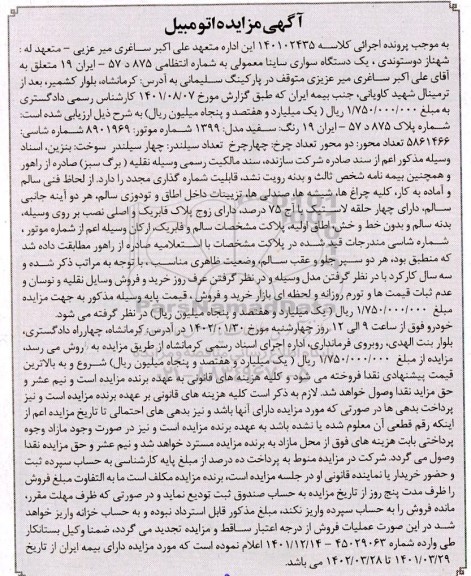 آگهی مزایده اتومبیل
به موجب پرونده اجرائی کلاسه ۱۴۰۱۰۲۴۳۵ این اداره متعهد علی اکبر ساغری میر عزیی – متعهد له :
شهناز دوستوندی ، یک دستگاه سواری ساینا معمولی به شماره انتظامی ۸۷۵ د ۵۷ – ایران ۱۹ متعلق به
آقای علی اکبر ساغری میر عزیزی متوقف در پارکینگ سلیمانی به آدرس: کرمانشاه، بلوار کشمیر، بعد از
ترمینال شهید کاویانی، جنب بیمه ایران که طبق گزارش مورخ ۱۴۰۱/۰۸/۰۷ کارشناس رسمی دادگستری
به مبلغ ۱/۷۵۰/۰۰۰/۰۰۰ ریال ( یک میلیارد و هفتصد و پنجاه میلیون ریال) به شرح ذیل ارزیابی شده است:
شماره پلاک ۸۷۵ د ۵۷ – ایران ۱۹ رنگ: سفید مدل: ۱۳۹۹ شماره موتور: ۸۹۰۱۹۶۹ شماره شاسی:
۵۸۶۱۴۶۶ تعداد محور: دو محور تعداد چرخ: چهارچرخ تعداد سیلندر: چهار سیلندر سوخت: بنزین، اسناد
وسیله مذکور اعم از سند صادره شرکت سازنده، سند مالکیت رسمی وسیله نقلیه ( برگ سبز) صادره از راهور
و همچنین بیمه نامه شخص ثالث و بدنه رویت نشد، قابلیت شماره گذاری مجدد را دارد. از لحاظ فنی سالم
و آماده به کار، کلیه چراغ ها، شیشه ها، صندلی ها، تزیینات داخل اطاق و تودوزی سالم، هر دو آینه جانبی
سالم، دارای چهار حلقه لاستیک با آج ۷۵ درصد، دارای زوج پلاک فابریک و اصلی نصب بر روی وسیله،
بدنه سالم و بدون خط و خش، اطاق اولیه، پلاکت مشخصات سالم و فابریک، ارکان وسیله اعم از شماره موتور ،
شماره شاسی مندرجات قید شده در پلاکت مشخصات با استعلامیه صادره از راهور مطابقت داده شد
که منطبق بود، هر دو سپر جلو و عقب سالم، وضعیت ظاهری مناسب ، با توجه به مراتب ذکر شده و
سه سال کارکرد با در نظر گرفتن مدل وسیله و در نظر گرفتن عرف روز خرید و فروش وسایل نقلیه و نوسان و
عدم ثبات قیمت ها و تورم روزانه و لحظه ای بازار خرید و فروش ، قیمت پایه وسیله مذکور به جهت مزایده
مبلغ ۱/۷۵۰/۰۰۰/۰۰۰ ریال (یک میلیارد و هفتصد و پنجاه میلیون ریال) در نظر گرفته می شود.
خودرو فوق از ساعت ۹ الی ۱۲ روز چهارشنبه مورخ ۱۴۰۲/۰۱/۳۰ در آدرس: کرمانشاه، چهارراه دادگستری،
بلوار بنت الهدی، روبروی فرمانداری، اداره اجرای اسناد رسمی کرمانشاه از طریق مزایده به فروش می رسد،
مزایده از مبلغ ۱/۷۵۰/۰۰۰/۰۰۰ ریال ( یک میلیارد و هفتصد و پنجاه میلیون ریال) شروع و به بالاترین
قیمت پیشنهادی نقدا فروخته می شود و کلیه هزینه های قانونی به عهده برنده مزایده است و نیم عشر و
حق مزاید نقدا وصول خواهد شد. لازم به ذکر است کلیه هزینه های قانونی بر عهده برنده مزایده است و نیز
پرداخت بدهی ها در صورتی که مورد مزایده دارای آنها باشد و نیز بدهی های احتمالی تا تاریخ مزایده اعم از
اینکه رقم قطعی آن معلوم شده یا نشده باشد به عهده برنده مزایده است و نیز در صورت وجود مازاد وجوه
پرداختی بابت هزینه های فوق از محل مازاد به برنده مزایده مسترد خواهد شد و نیم عشر و حق مزایده نقدا
وصول می گردد. شرکت در مزایده منوط به پرداخت ده درصد از مبلغ پایه کارشناسی به حساب سپرده ثبت
و حضور خریدار یا نماینده قانونی او در جلسه مزایده است، برنده مزایده مکلف است ما به التفاوت مبلغ فروش
را ظرف مدت پنج روز از تاریخ مزایده به حساب صندوق ثبت تودیع نماید و در صورتی که ظرف مهلت مقرر،
مانده فروش را به حساب سپرده واریز نکند، مبلغ مذکور قابل استرداد نبوده و به حساب خزانه واریز خواهد
شد در این صورت عملیات فروش از درجه اعتبار ساقط و مزایده تجدید می گردد، ضمنا وکیل بستانکار
طی وارده شماره ۴۵۰۲۹۰۶۳ – ۱۴۰۱/۱۲/۱۴ اعلام نموده است که مورد مزایده دارای بیمه ایران از تاریخ
۱۴۰۱/۰۳/۲۹ تا ۱۴۰۲/۰۳/۲۸ می باشد.